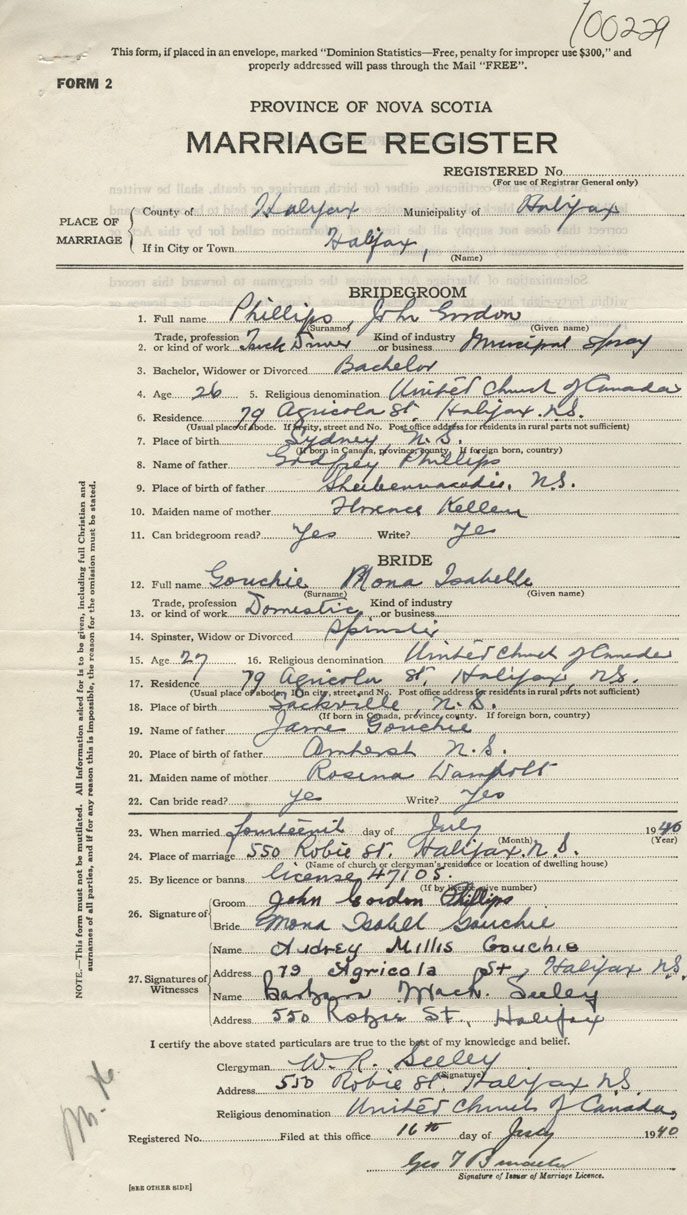 100229
This form, if placed in an envelope, marked "Dominion Statistics—Free, penalty for improper use $300," and
properly addressed will pass through the Mail "FREE".
FORM 2
PROVINCE OF NOVA SCOTIA
MARRIAGE REGISTER
REGISTERED No.
(For use of Registrar General only)
PLACE OF MARRIAGE
County of Halifax Municipality of Halifax
If in City or Town Halifax,
(Name)
BRIDEGROOM
1. Full name Phillips, John Gordon
(Surname) (Given name)
2. Trade, profession or kind of work Truck Driver Kind of industry or business Municipal
3. Bachelor, Widower or Divorced Bachelor
4. Age 26 5. Religious denomination United Church of Canada
6. Residence 79 Agricola St. Halifax. N.S.
(Usual place of abode. If in city, street and No. Post office address for residents in rural parts not sufficient)
7. Place of birth Sydney, N.S.
(If born in Canada, province, county. If foreign born, country)
8. Name of father Godfrey Phillips
9. Place of birth of father Shubennacadie, N.S.
10. Maiden name of mother Florence
11. Can bridegroom read? Yes Write? Yes
BRIDE
12. Full name Gouchie Mona Isabelle
(Surname) (Given name)
13. Trade, profession or kind of work Domestic Kind of industry or business
14. Spinster, Widow or Divorced Spinster
15. Age 27 16. Religious denomination United Church of Canada
17. Residence 79 Agricola St. Halifax, N.S.
(Usual place of abode. If in city, street and No. Post office address for residents in rural parts not sufficient)
18. Place of birth Sackville, N.S.
(If born in Canada, province, county. If foreign born, country)
19. Name of father James Gouchie
20. Place of birth of father Amherst N.S.
21. Maiden name of mother Rosena
22. Can bride read? Yes Write? Yes
23. When married fourteenth day of July 1940
(Month) (Year)
24. Place of marriage 550 Robie St. Halifax. N.S.
(Name of church or clergyman's residence or location of dwelling house)
25. By licence or banns license 47105.
(If by licence give number)
26. Signature of
Groom John Gordon Phillips
Bride Mona Isabell Gouchie
27. Signatures of Witnesses
Name Audrey Millis Gouchie
Address 79 Agricola St, Halifax N.S.
Name Barbara Mach. Seeley
Address 550 Robie St., Halifax
I certify the above stated particulars are true to the best of my knowledge and belief.
Clergyman W. R. Seeley
(Signature)
Address 550 Robie St. Halifax N.S.
Religious denomination United Church of Canada,
Registered No. Filed at this office 16th day of July 1940
Geo
Signature of Issuer of Marriage Licence.
[SEE OTHER SIDE]
NOTE.—This form must not be mutilated. All information asked for is to be given, including full Christian and
surnames of all parties, and if for any reason this is impossible, the reason for the omission must be stated.